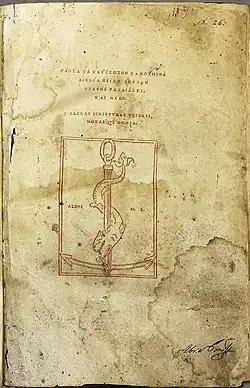 ΠΑΝΤΑ ΤΑ ΚΑΤ' ΕΞΟΧΗΝ ΚΑΛΟΥΜΕΝΑ
ΒΙΒΛΙΑ ΘΕΙΑΣ ΔΗΛΑΔΗ
ΓΡΑΦΗΣ ΠΑΛΑΙΑΣ ΤΕ,
ΚΑΙ ΝΕΑΣ.
SACRAE SCRIPTVRAE VETERIS,
NOVAEQVE OMNIA.
ALDVS M. R.